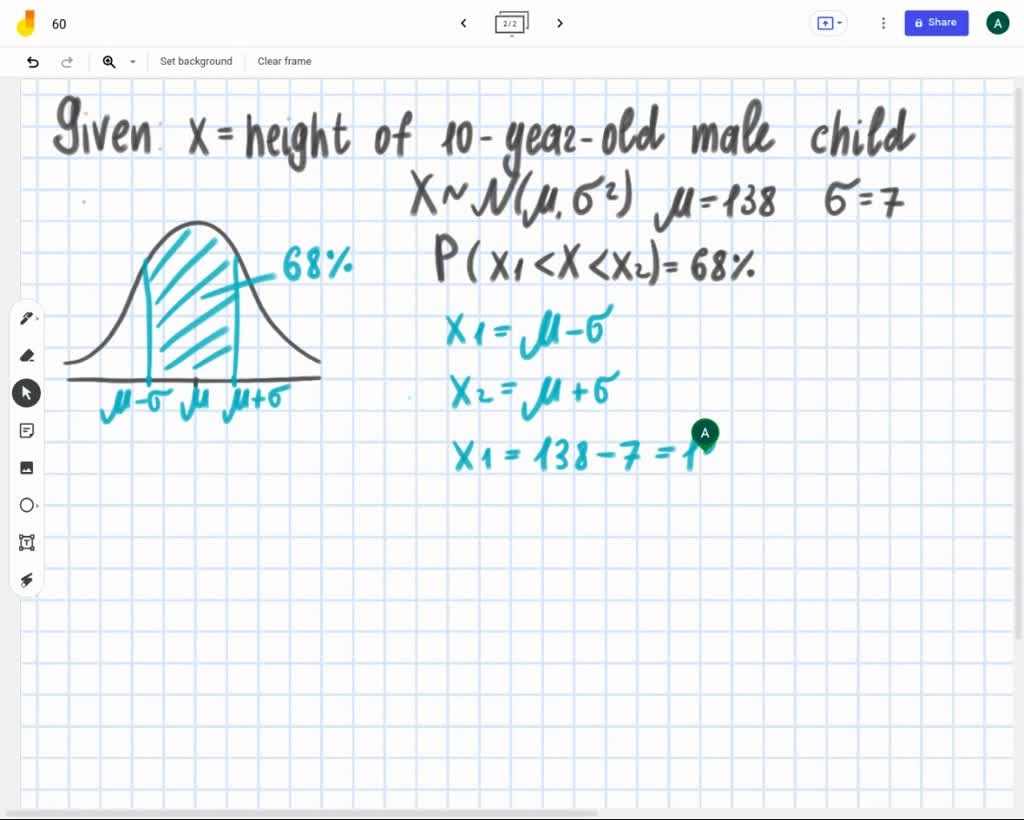 60
2/2
Share
A
Set background
Clear frame
Given: X = height of 10-year-old male child
X ~ N(μ, σ²) μ = 138 σ = 7
68%
P(x1 < X < x2) = 68%
x1 = μ - σ
x2 = μ + σ
μ-σ μ μ+σ
A
x1 = 138 - 7 = 1
T